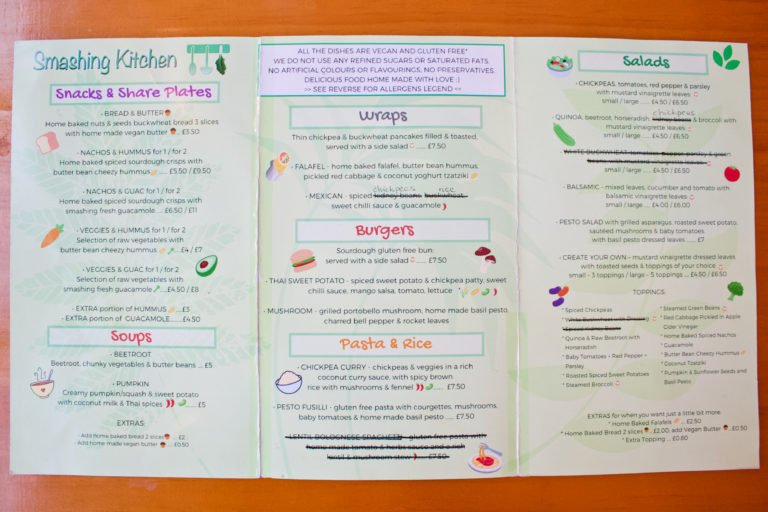 Smashing Kitchen
Snacks & Share Plates
• BREAD & BUTTER
Home baked nuts & seeds buckwheat bread 3 slices
with home made vegan butter .. £3.50
• NACHOS & HUMMUS for 1 / for 2
Home baked spiced sourdough crisps with
butter bean cheezy hummus .... £5.50 / £9.50
• NACHOS & GUAC for 1 / for 2
Home baked spiced sourdough crisps with
smashing fresh guacamole .... £6.50 / £11
• VEGGIES & HUMMUS for 1 / for 2
Selection of raw vegetables with
butter bean cheezy hummus ... £4 / £7
• VEGGIES & GUAC for 1 / for 2
Selection of raw vegetables with
smashing fresh guacamole ...£4.50 / £8
• EXTRA portion of HUMMUS .....£3
• EXTRA portion of GUACAMOLE......£4.50
Soups
• BEETROOT
Beetroot, chunky vegetables & butter beans .... £5
• PUMPKIN
Creamy pumpkin/squash & sweet potato
with coconut milk & Thai spices .....£5
EXTRAS:
• Add home baked bread 2 slices ... £2
• Add home made vegan butter ...£0.50
ALL THE DISHES ARE VEGAN AND GLUTEN FREE*
WE DO NOT USE ANY REFINED SUGARS OR SATURATED FATS.
NO ARTIFICIAL COLOURS OR FLAVOURINGS, NO PRESERVATIVES.
DELICIOUS FOOD HOME MADE WITH LOVE :)
>> SEE REVERSE FOR ALLERGENS LEGEND <<
Wraps
Thin chickpea & buckwheat pancakes filled & toasted,
served with a side salad ..... £7.50
• FALAFEL - home baked falafel, butter bean hummus,
pickled red cabbage & coconut yoghurt tzatziki
chickpeas rice
• MEXICAN - spiced kidney beans buckwheat,
sweet chilli sauce & guacamole
Burgers
Sourdough gluten free bun,
served with a side salad ..... £7.50
• THAI SWEET POTATO - spiced sweet potato & chickpea patty, sweet
chilli sauce, mango salsa, tomato, lettuce
• MUSHROOM - grilled portobello mushroom, home made basil pesto,
charred bell pepper & rocket leaves
Pasta & Rice
• CHICKPEA CURRY - chickpeas & veggies in a rich
coconut curry sauce, with spicy brown
rice with mushrooms & fennel ..... £7.50
• PESTO FUSILLI - gluten free pasta with courgettes, mushrooms,
baby tomatoes & home made basil pesto ...... £7.50
• LENTIL BOLOGNESE SPAGHETTI - gluten free pasta with
home made tomato & herbs sauce and a rich
lentil & mushroom stew ..... £7.50
Salads
• CHICKPEAS, tomatoes, red pepper & parsley
with mustard vinaigrette leaves
small / large ..... £4.50 / £6.50
chickpeas
• QUINOA, beetroot, horseradish, kidney beans & broccoli with
mustard vinaigrette leaves
small / large ..... £4.50 / £6.50
WHITE BUCKWHEAT, tomatoes, pepper, parsley & green
beans with mustard vinaigrette leaves
small / large ..... £4.50 / £6.50
• BALSAMIC - mixed leaves, cucumber and tomato with
balsamic vinaigrette leaves
small / large ..... £4.00 / £6.00
• PESTO SALAD with grilled asparagus, roasted sweet potato,
sautéed mushrooms & baby tomatoes
with basil pesto dressed leaves ..... £7
• CREATE YOUR OWN - mustard vinaigrette dressed leaves
with toasted seeds & toppings of your choice
small - 3 toppings / large - 5 toppings ..... £4.50 / £6.50
TOPPING:
* Spiced Chickpeas
* White Buckwheat with Dressing
* Spiced Kidney Beans
* Quinoa & Raw Beetroot with
Horseradish
* Baby Tomatoes + Red Pepper +
Parsley
* Roasted Spiced Sweet Potatoes
* Steamed Broccoli
* Steamed Green Beans
* Red Cabbage Pickled in Apple
Cider Vinegar
* Home Baked Spiced Nachos
* Guacamole
* Butter Bean Cheezy Hummus
* Coconut Tzatziki
* Pumpkin & Sunflower Seeds and
Basil Pesto
EXTRAS for when you want just a little bit more:
* Home Baked Falafels ... £2.50
* Home Baked Bread 2 slices ...£2.00, add Vegan Butter ...£0.50
* Extra Topping .... £0.80